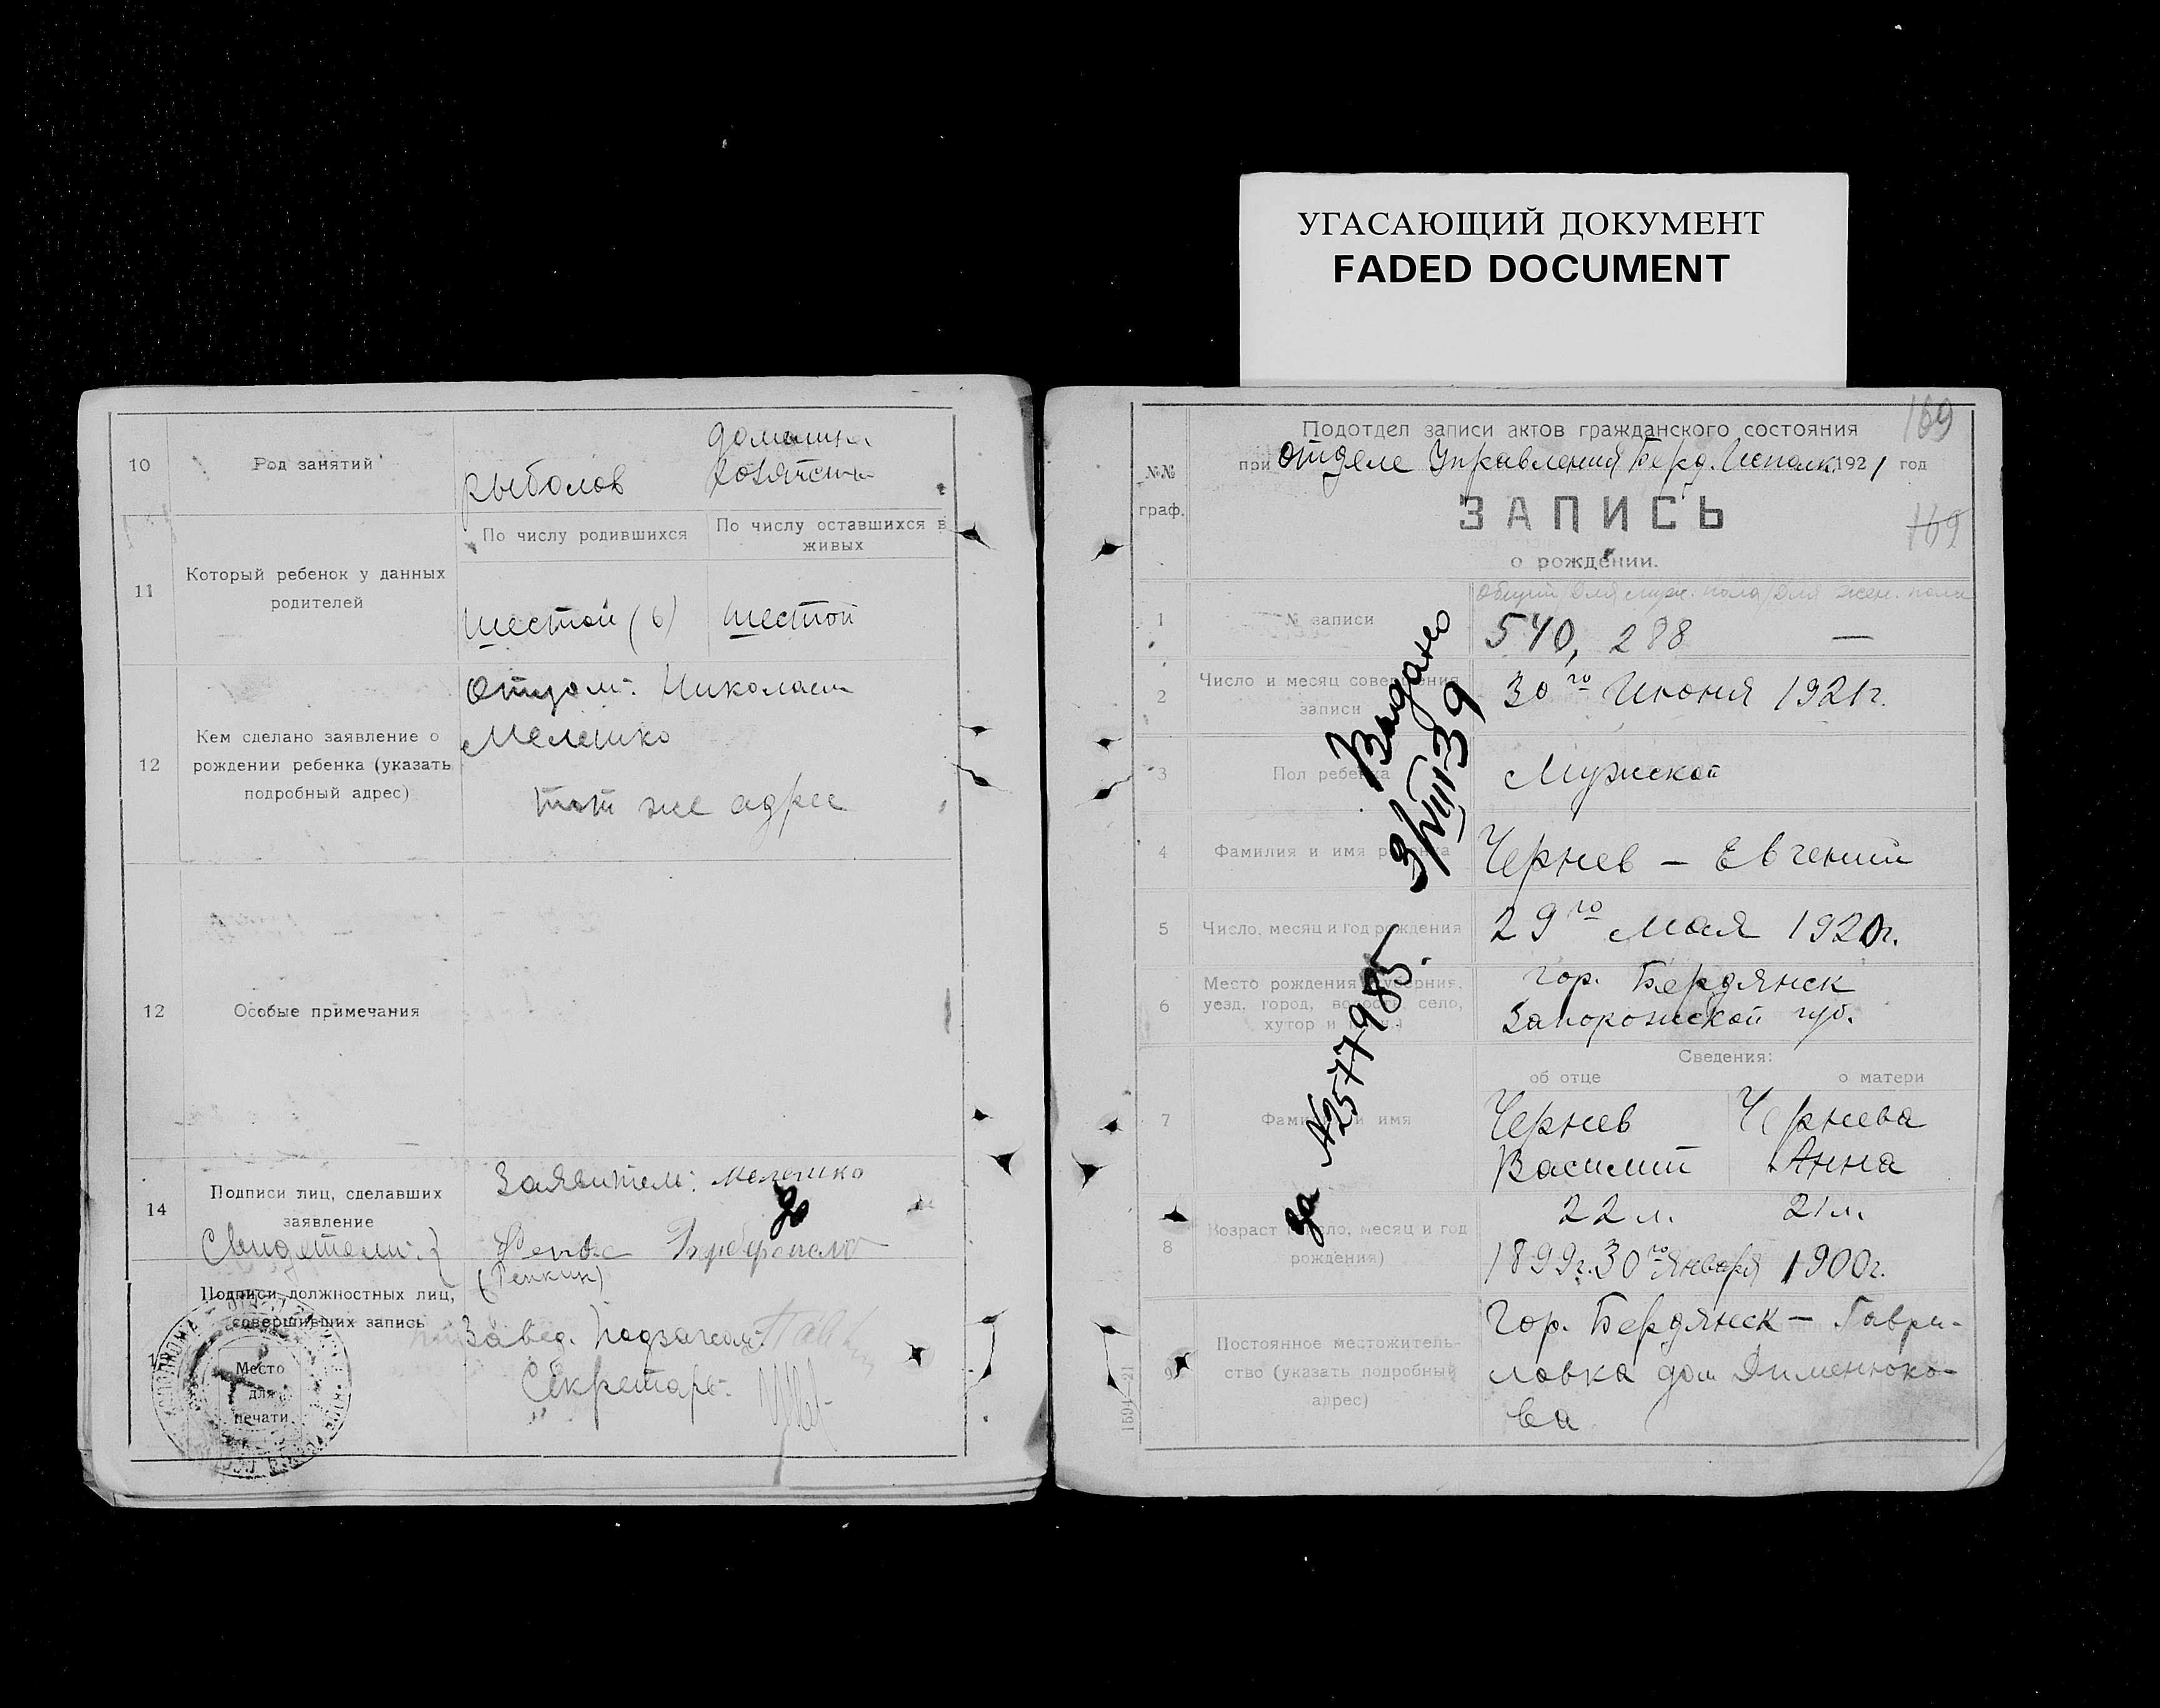 УГАСАЮЩИЙ ДОКУМЕНТ
FADED DOCUMENT
10
Род занятий
рыболов
домашн
хозяйств
11
Который ребенок у данных
родителей
По числу родившихся
По числу оставшихся в
живых
шестой (6)
шестой
12
Кем сделано заявление о
рождении ребенка (указать
подробный адрес)
Отцом: Николаем
Мелешко
тот же адрес
12
Особые примечания
14
Подписи лиц, сделавших
заявление
Свидетели:
Заявитель: Мелешко
(Репкин)
Подписи должностных лиц,
совершивших запись
Место
для
печати
Завед. Подзагсом:
Секретарь:
169
№№
граф.
Подотдел записи актов гражданского состояния
при Отделе Управления Берд. Исполк. 1921 год
ЗАПИСЬ
о рождении.
169
1
№ записи
Общий / для муж. пола / для жен. пола
540, 288 —
2
Число и месяц совершения
записи
30го Июня 1921г.
3
Пол ребенка
Мужской
4
Фамилия и имя ребенка
Чернев — Евгений
5
Число, месяц и год рождения
29го мая 1920г.
6
Место рождения (губерния,
уезд, город, волость, село,
хутор и
гор. Бердянск
Запорожской губ.
Сведения:
об отце
о матери
7
Фамилия и имя
Чернев
Василий
Чернева
Анна
8
Возраст (число, месяц и год
рождения)
22 л.
21 л.
1899г. 30го Января
1900г.
9
Постоянное местожитель-
ство (указать подробный
адрес)
Гор. Бердянск — Гаври-
ловка дом Дименкоко-
ва
Выдано
3/VIII 39
за №2577985.
1594—21